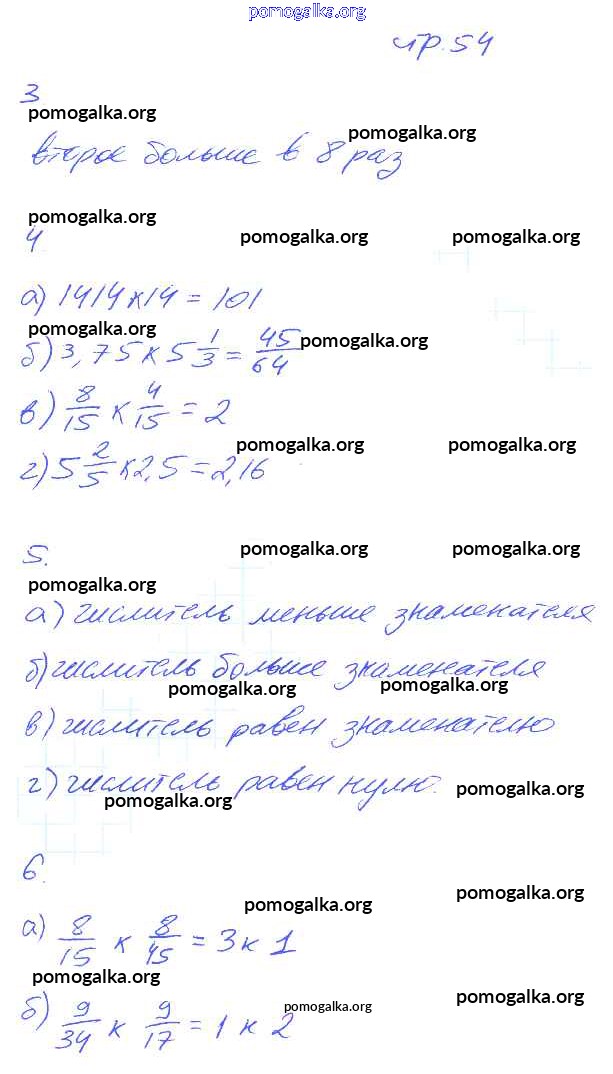 pomogalka.org
стр.54
3
pomogalka.org
pomogalka.org
второе больше в 8 раз
pomogalka.org
4.
pomogalka.org pomogalka.org
а) 1414 к 14 = 101
pomogalka.org
pomogalka.org
б) 3,75 к 5 1/3 = 45/64
в) 8/15 к 4/15 = 2
pomogalka.org pomogalka.org
г) 5 2/5 к 2,5 = 2,16
5.
pomogalka.org pomogalka.org
pomogalka.org
а) числитель меньше знаменателя
б) числитель больше знаменателя
pomogalka.org pomogalka.org
в) числитель равен знаменателю
г) числитель равен нулю.
pomogalka.org
pomogalka.org
6.
pomogalka.org
pomogalka.org
а) 8/15 к 8/45 = 3 к 1
pomogalka.org
pomogalka.org
pomogalka.org
б) 9/34 к 9/17 = 1 к 2